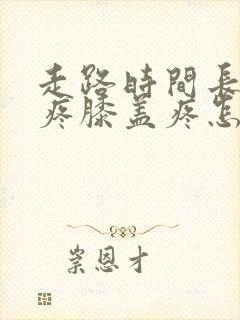 走路時間長
疼膝盖疼怎
崇恩才